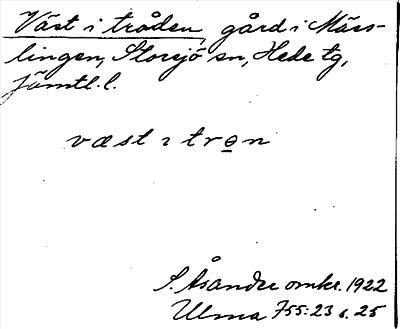 Väst i tråden, gård i Mäss-
lingen, Storsjö sn, Hede tg,
Jämtl. l.
væst ı tron
S. Åsander omkr. 1922
Ulma 755:23 s. 25